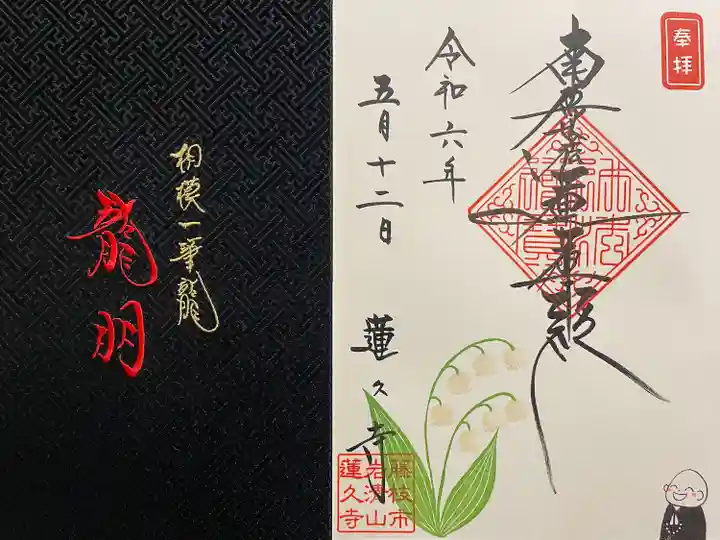 相模一筆龍
龍明
奉拝
南無妙法蓮華経
令和六年
五月十二日
蓮久寺
藤枝市
蓮久寺